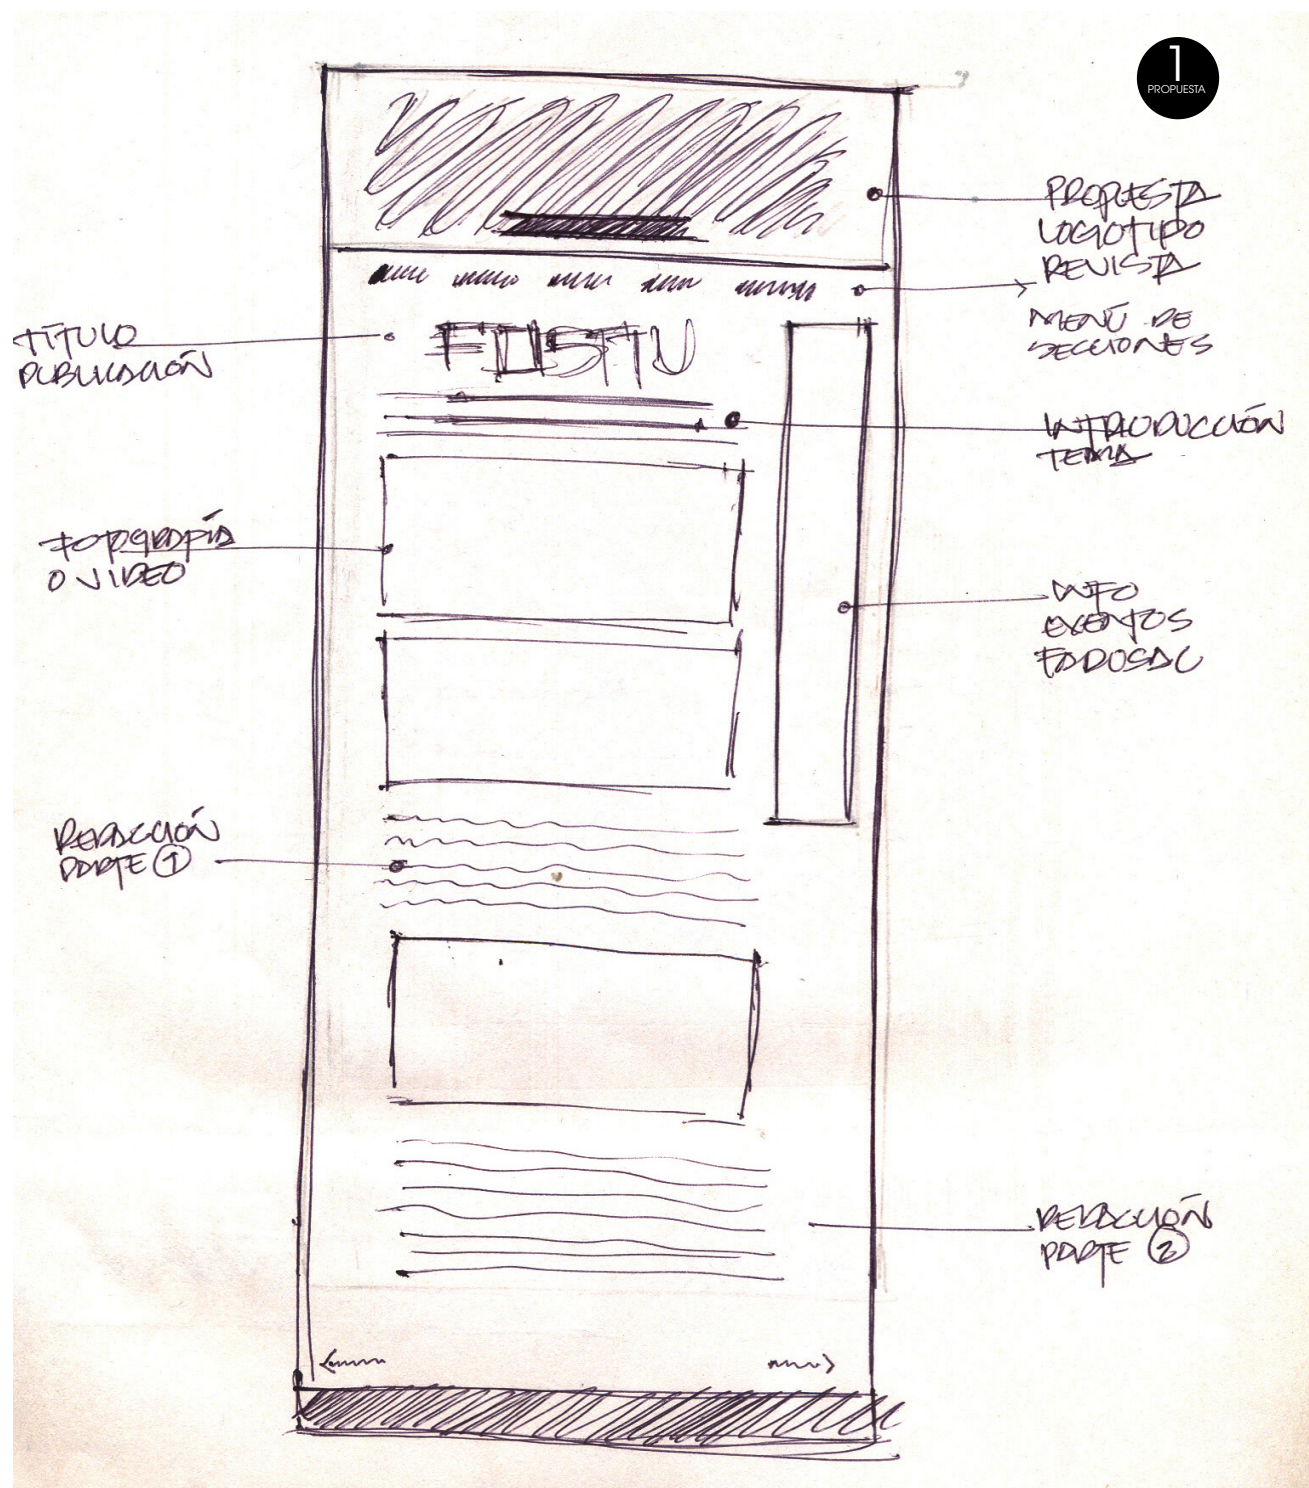 1
PROPUESTA
PROPUESTA
LOGOTIPO
REVISTA
MENÚ DE
SECCIONES
TÍTULO
PUBLICACIÓN
INTRODUCCIÓN
TEMA
FOTOGRAFÍA
O VIDEO
INFO
EVENTOS
FADUSAC
REDACCIÓN
PARTE 1
REDACCIÓN
PARTE 2